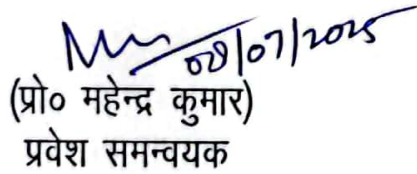 08/07/2025
(प्रो० महेन्द्र कुमार)
प्रवेश समन्वयक